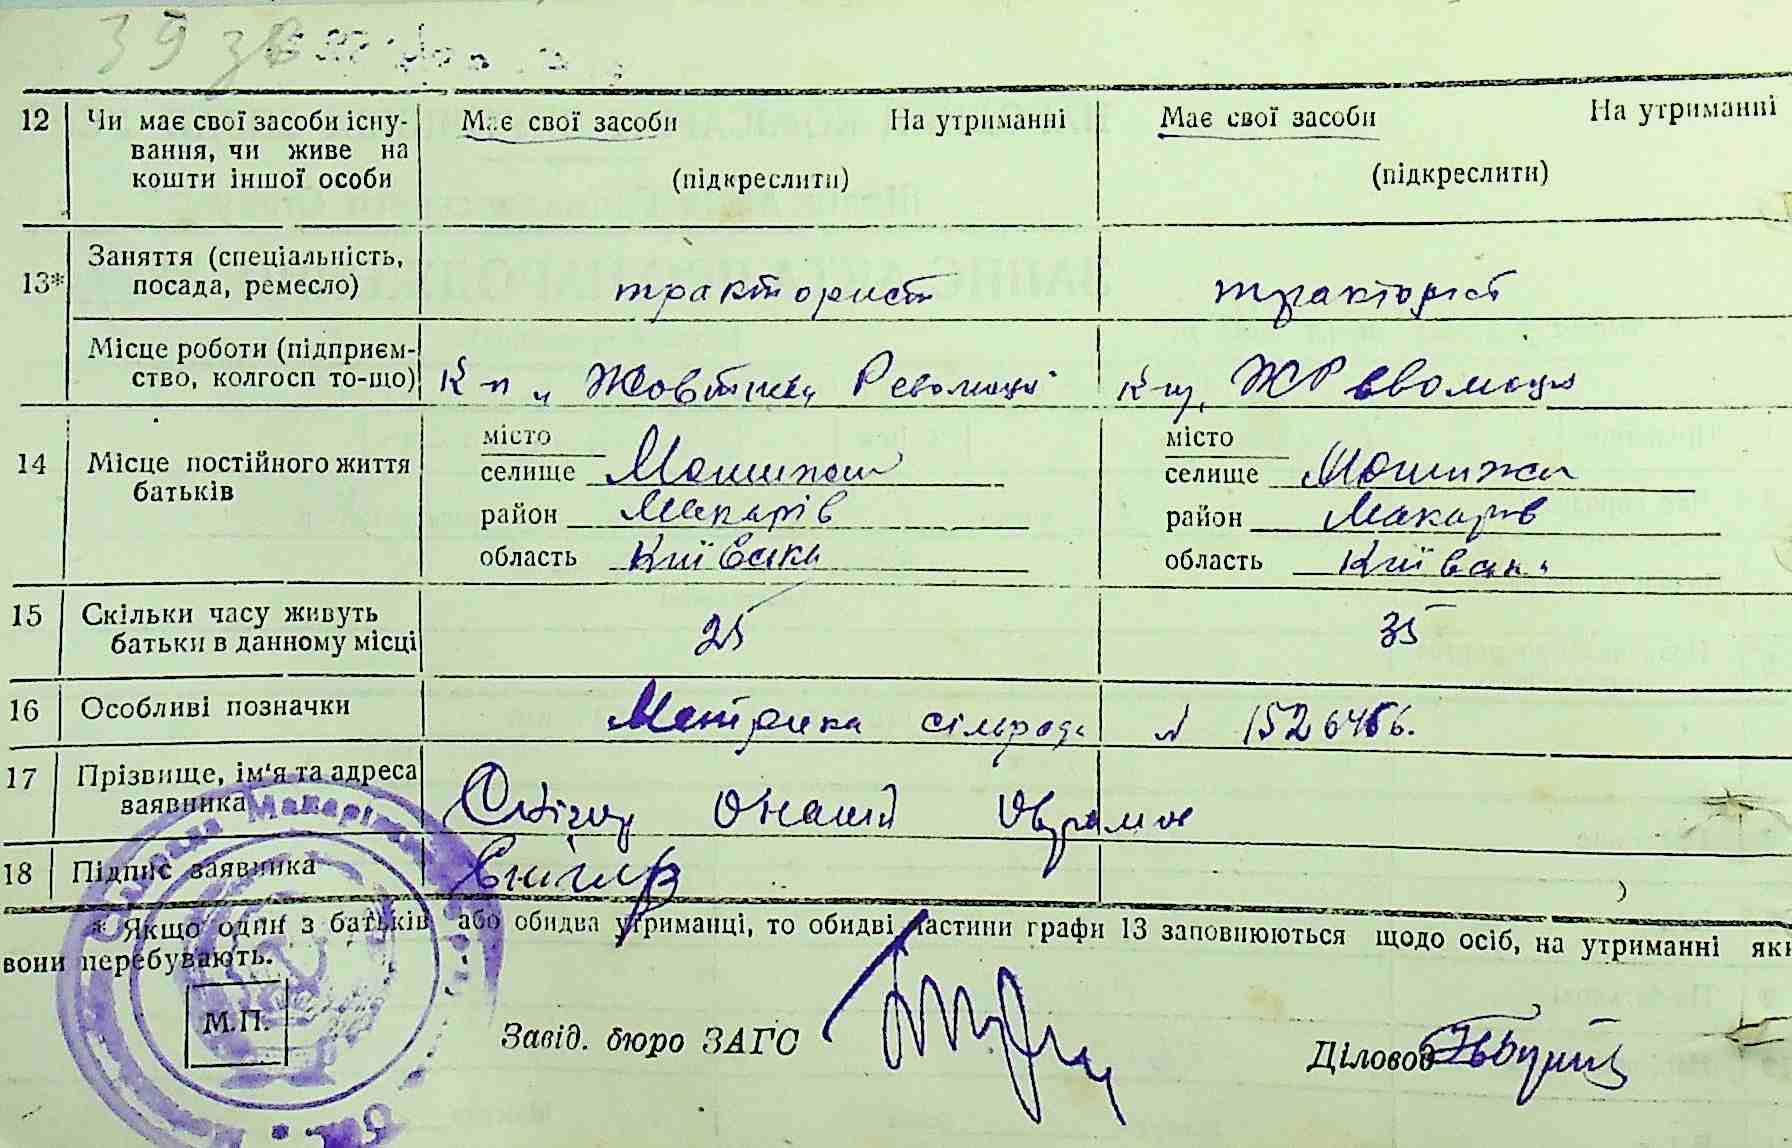 39
12 Чи має свої засоби існу- Має свої засоби На утриманні Має свої засоби На утриманні
вання, чи живе на
кошти іншої особи (підкреслити) (підкреслити)
13* Заняття (спеціальність,
посада, ремесло) тракторист тракторист
Місце роботи (підприєм-
ство, колгосп то-що) К-п „Жовтнева Революція" к-п, ЖРеволюція
14 Місце постійного життя
батьків
місто місто
селище селище
район Макарів район Макарів
область Київська область Київська
15 Скільки часу живуть
батьки в данному місці 25 35
16 Особливі позначки Метрика сільрада № 1526466.
17 Прізвище, ім'я та адреса
заявника
18 Підпис заявника
* Якщо один з батьків або обидва утриманці, то обидві частини графи 13 заповнюються щодо осіб, на утриманні яки
вони перебувають.
М.П.
Завід. бюро ЗАГС Діловод